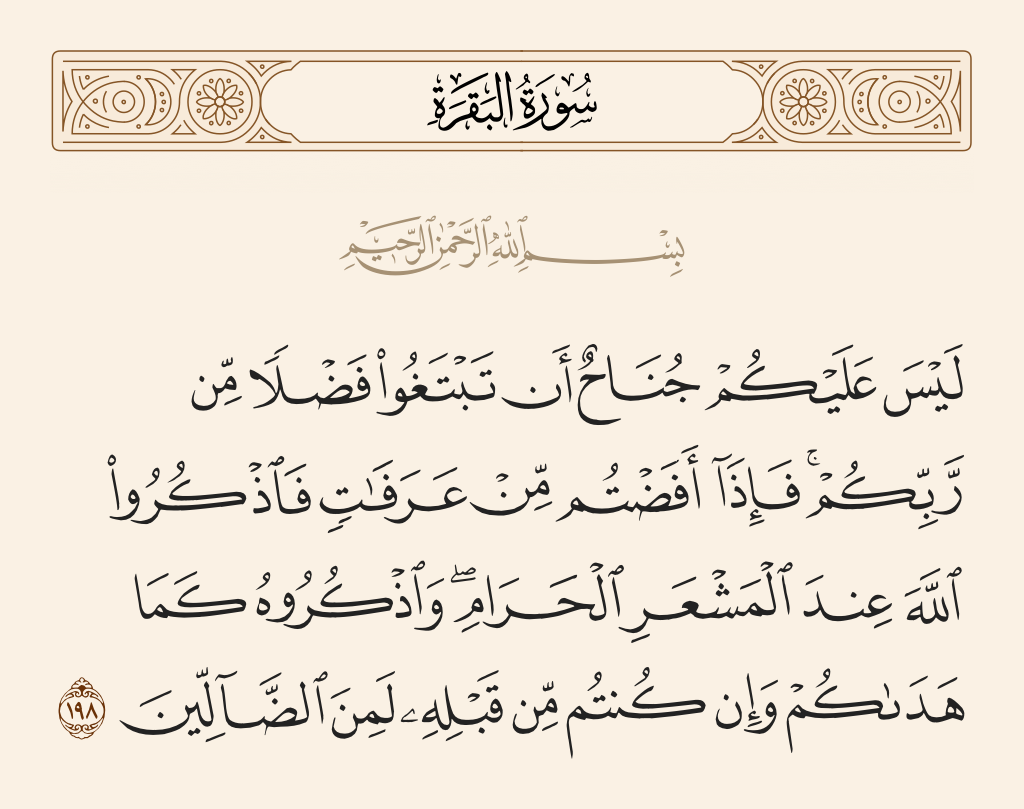 سُورَةُ البَقَرَةِ
بِسْمِ ٱللَّهِ ٱلرَّحْمَٰنِ ٱلرَّحِيمِ
لَيْسَ عَلَيْكُمْ جُنَاحٌ أَن تَبْتَغُوا۟ فَضْلًا مِّن
رَّبِّكُمْ ۚ فَإِذَآ أَفَضْتُم مِّنْ عَرَفَٰتٍ فَٱذْكُرُوا۟
ٱللَّهَ عِندَ ٱلْمَشْعَرِ ٱلْحَرَامِ ۖ وَٱذْكُرُوهُ كَمَا
هَدَىٰكُمْ وَإِن كُنتُم مِّن قَبْلِهِۦ لَمِنَ ٱلضَّآلِّينَ ١٩٨